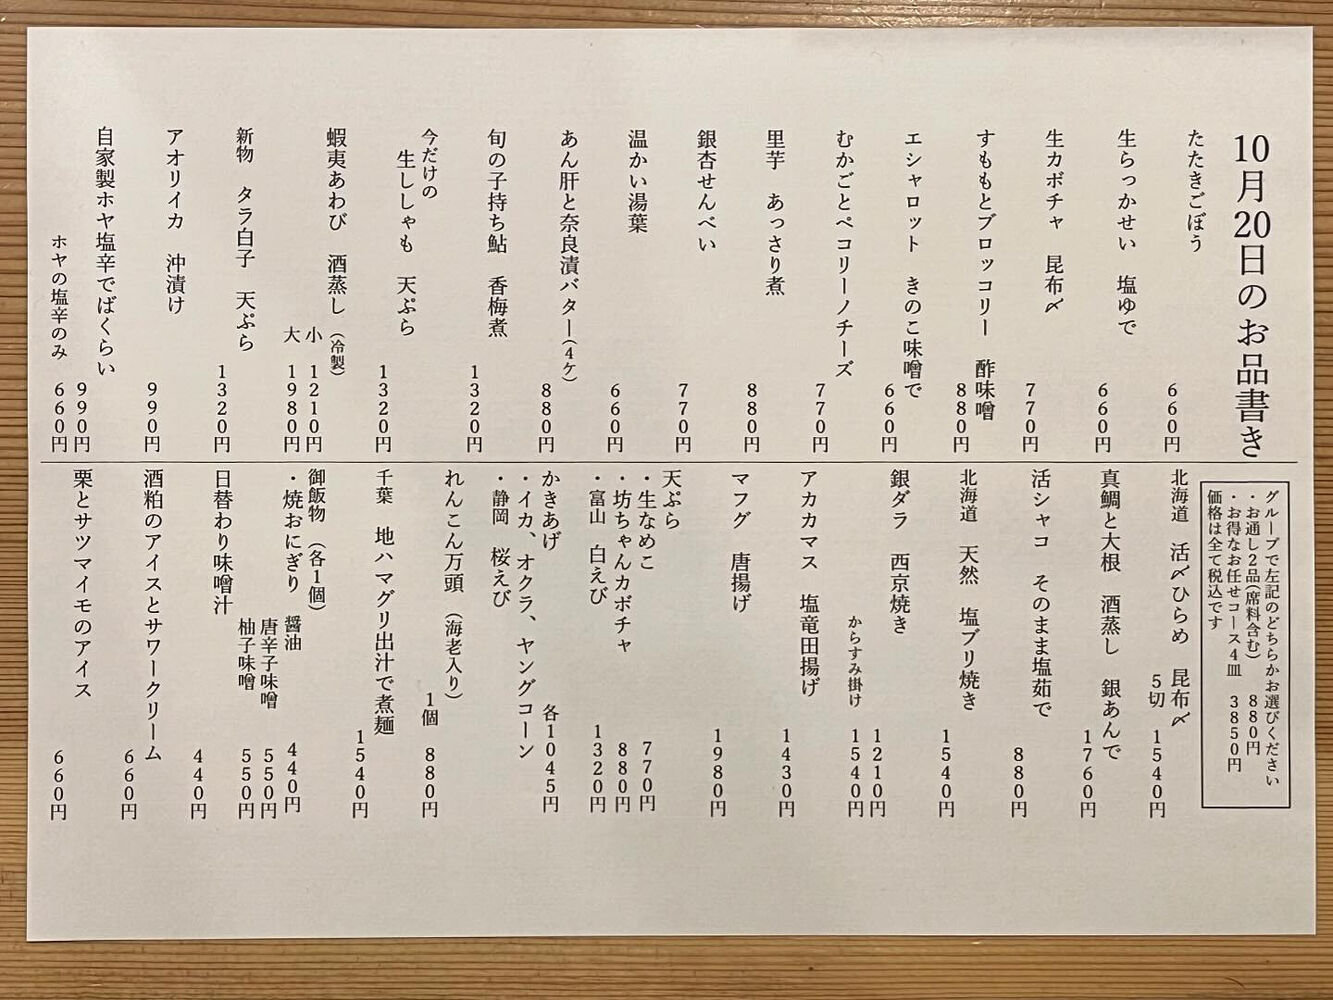 10月20日のお品書き
たたきごぼう 660円
生らっかせい 塩ゆで 660円
生カボチャ 昆布〆 770円
すももとブロッコリー 酢味噌 880円
エシャロット きのこ味噌で 660円
むかごとペコリーノチーズ 770円
里芋 あっさり煮 880円
銀杏せんべい 770円
温かい湯葉 660円
あん肝と奈良漬バター(4ケ) 880円
旬の子持ち鮎 香梅煮 1320円
今だけの
生ししゃも 天ぷら 1320円
蝦夷あわび 酒蒸し(冷製)
小 1210円
大 1980円
新物 タラ白子 天ぷら 1320円
アオリイカ 沖漬け 990円
自家製ホヤ塩辛でばくらい 990円
ホヤの塩辛のみ 660円
グループで左記のどちらかお選びください
・お通し2品(席料含む) 880円
・お得なお任せコース4皿 3850円
価格は全て税込です
北海道 活〆ひらめ 昆布〆
5切 1540円
真鯛と大根 酒蒸し 銀あんで 1760円
活シャコ そのまま塩茹で 880円
北海道 天然 塩ブリ焼き 1540円
銀ダラ 西京焼き 1210円
からすみ掛け 1540円
アカカマス 塩竜田揚げ 1430円
マフグ 唐揚げ 1980円
天ぷら
・生なめこ 770円
・坊ちゃんカボチャ 880円
・富山 白えび 1320円
かきあげ 各1045円
・イカ、オクラ、ヤングコーン
・静岡 桜えび
れんこん万頭(海老入り)
1個 880円
千葉 地ハマグリ出汁で煮麺 1540円
御飯物(各1個)
・焼おにぎり 醤油 440円
唐辛子味噌 550円
柚子味噌 550円
日替わり味噌汁 440円
酒粕のアイスとサワークリーム 660円
栗とサツマイモのアイス 660円